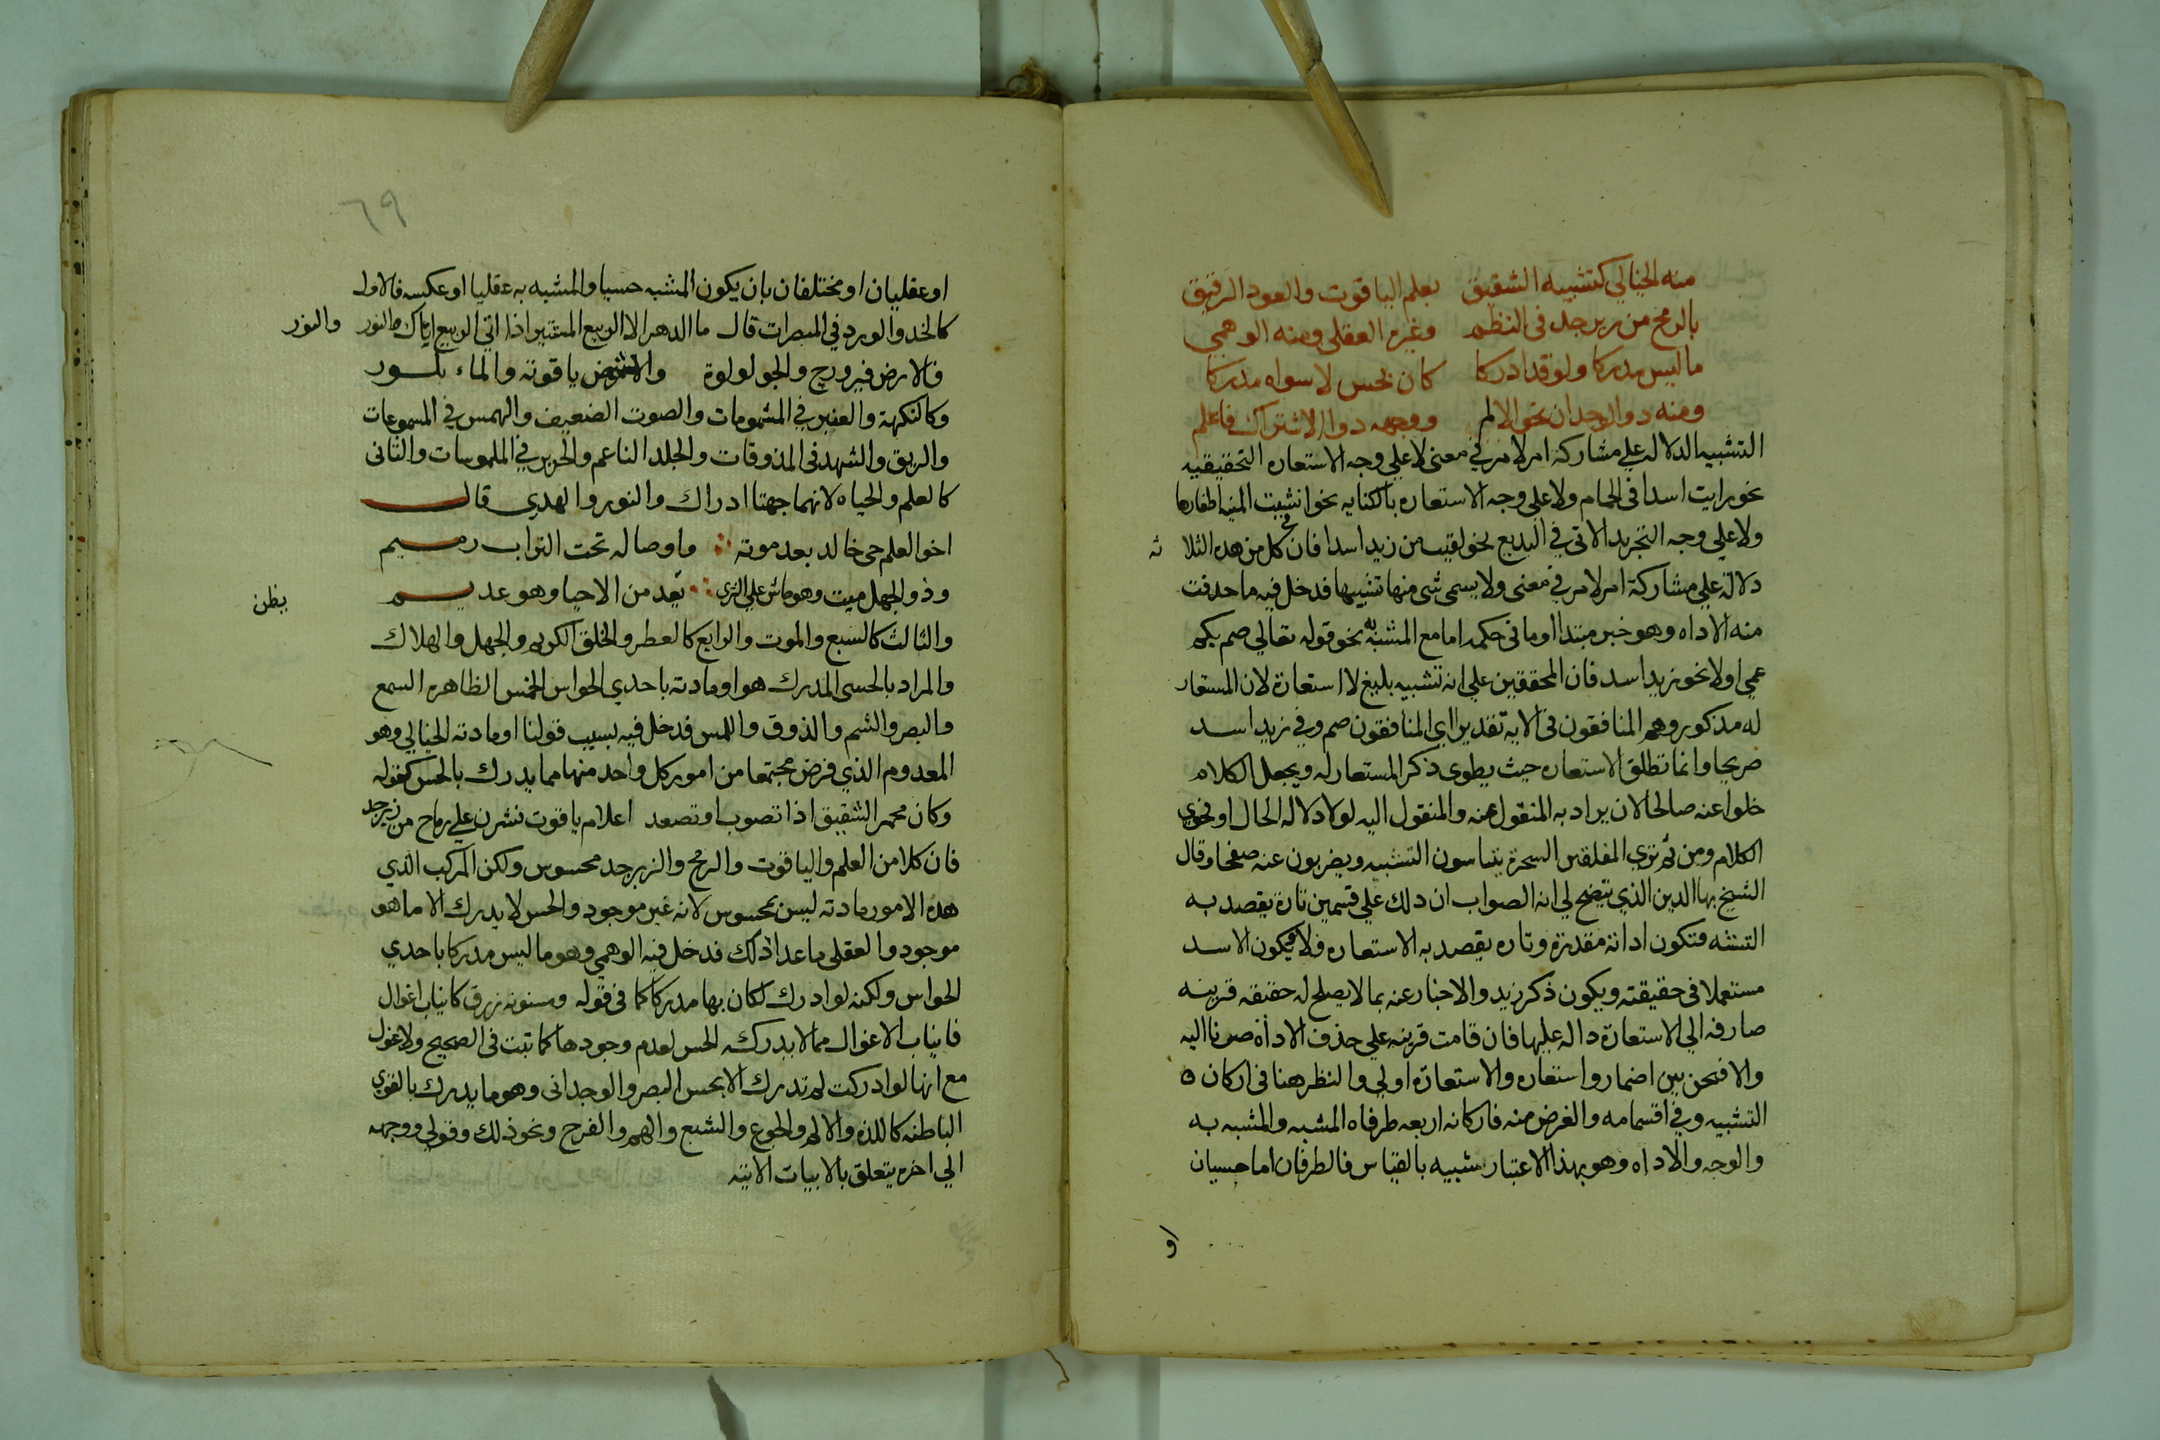 منه الخيالي كتشبيه الشقيق بعلم الياقوت والعود الرقيق
بالرمح من زبرجد في النظم وغيره العقلي ومنه الوهمي
ما ليس مدركا ولو قد ادركا كان بحس لا سواه مدركا
ومنه ذو الوجدان نحو الالم ووجهه ذو الاشتراك فاعلم
التشبيه الدلاله علي مشاركة امر لامر في معني لا علي وجه الاستعاره التحقيقيه
نحو رايت اسدا في الحمام ولا علي وجه الاستعاره بالكنايه نحو انشبت المنية اظفارها
ولا علي وجه التجريد الاتي في البديع نحو لقيت من زيد اسدا فان في كل من هذه الثلا ثه
دلالة علي مشاركة امر لامر في معنى ولا يسمى شي منها تشبيها فدخل فيه ما حذفت
منه الاداه وهو خبر مبتدا او ما في حكمه اما مع المشبه به نحو قوله تعالي صم بكم
عمي اولا نحو زيد اسد فان المحققين علي انه تشبيه بليغ لا استعارة لان المستعار
له مذكور وهم المنافقون في الايه تقديرا اي المنافقون صم وفي زيد اسد
صريحا وانما تطلق الاستعاره حيث يطوى ذكر المستعار له ويجعل الكلام
خلوا عنه صالحا لان يراد به المنقول عنه والمنقول اليه لولا دلاله الحال او فحوي
الكلام ومن ثم تري المفلقين السحرة يتناسون التشبيه ويضربون عنه صفحا وقال
الشيخ بها الدين الذي يتضح لي انه الصواب ان ذلك علي قسمين تارة يقصد به
التشبيه فتكون اداته مقدرة وتاره يقصد به الاستعاره فلا فيكون الاسد
مستعملا في حقيقته ويكون ذكر زيد والاخبار عنه بما لا يصلح له حقيقه قرينه
صارفه الي الاستعارة داله عليها فان قامت قرينه علي حذف الاداة صرنا اليه
والا فنحن بين اضمار واستعاره والاستعارة اولي والنظر هنا في اركان ه
التشبيه وفي اقسامه والغرض منه فاركانه اربعه طرفاه المشبه والمشبه به
والوجه والاداه وهو بهذا الاعتبار شبيه بالقياس فالطرفان اما حسيان
او
٦٩
او عقليان او مختلفان بان يكون المشبه حسيا والمشبه به عقليا او عكسه فالاول
كالخد والورد في المبصرات قال ما الدهر الا الربيع المستنير اذا اتي الربيع اتاك والنور والنور
فالارض فيروزج والجو لولوة والارض ياقوتة والماء بلور
وكالنكهة والعنبر في المشمومات والصوت الضعيف والهمس في المسموعات
والريق والشهد في المذوقات والجلد الناعم والحرير في الملموسات والثانى
كالعلم والحياه لانهما جهتا ادراك والنور والهدي قال
اخو العلم حي خالد بعد موته واوصاله تحت التراب رميم
وذو الجهل ميت وهو ماش علي الثري يعد من الاحيا وهو عديم
يظن
والثالث كالسبع والموت والرابع كالعطر والخلق الكريم والجهل والهلاك
والمراد بالحسي المدرك هو او مادته باحدي الحواس الخمس الظاهره السمع
والبصر والشم والذوق واللمس فدخل فيه بسبب قولنا او مادته الخيالي وهو
المعدوم الذي فرض مجتمعا من امور كل واحد منها مما يدرك بالحس كقوله
وكان محمر الشقيق اذا تصوب او تصعد اعلام ياقوت نشرن علي رماح من زبرجد
فان كلا من العلم والياقوت والرمح والزبرجد محسوس ولكن المركب الذي
هذه الامور مادته ليس بمحسوس لانه غير موجود والحس لا يدرك الا ما هو
موجود والعقلى ما عدا ذلك فدخل فيه الوهمي وهو ما ليس مدركا باحدي
الحواس ولكنه لو ادرك لكان بها مدركا كما في قوله ومسنونه زرق كانياب اغوال
فانياب الاغوال مما لا يدركه الحس لعدم وجودها كما ثبت في الصحيح ولا غول
مع انها لو ادركت لم تدرك الا بحس البصر والوجدانى وهو ما يدرك بالقوي
الباطنه كاللذه والالم والجوع والشبع والهم والفرح ونحو ذلك وقولي ووجهه
الي اخره يتعلق بالابيات الاتية